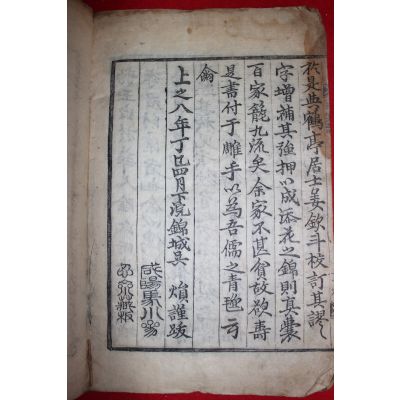 於是與鶴亭居士姜欽斗校訂其謬
字增補其強押以成添花之錦則真囊
百家籠九流矣余家不甚貧故欲壽
是書付于雕手以為吾儒之青氈云
爾
上之八年丁巳四月下浣錦城吳 謹跋
咸陽東川
板